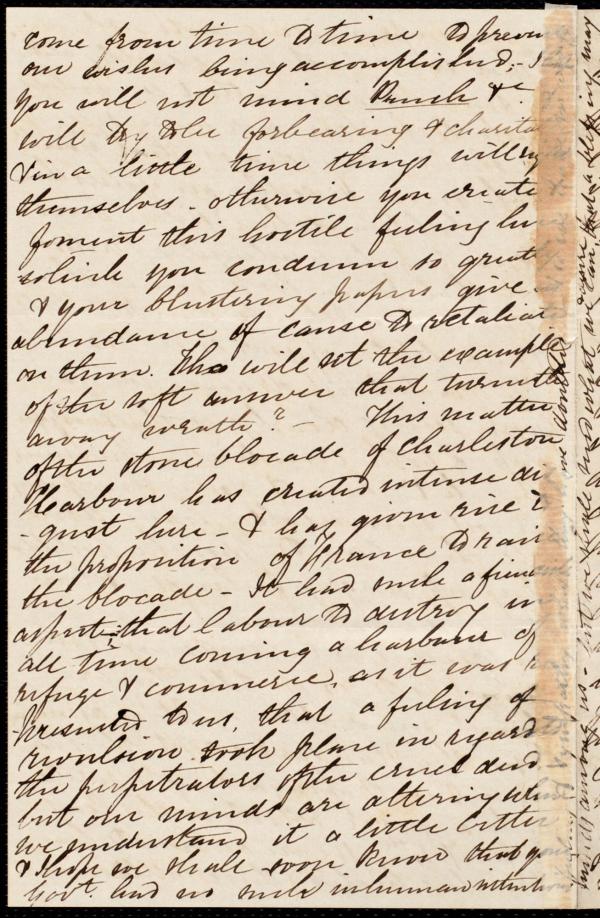 come from time to time to preven
our wishes being accomplished,- I
you will not mind Punch &c
will try to be forbearing & charita
& in a little time things will
themselves - otherwise you create
foment this hostile feeling he
which you condemn so great
& your blustering papers give
abundance of cause to retaliat
on them. Who will set the example
of the soft answer that turneth
away wrath? - This matter
of the stone blocade of Charleston
Harbour has created intense dis
-gust here - & has given rise to
the proposition of France to rais
the blocade - It had such a fien
aspect, that labour to destroy in
all time coming a harbour of
refuge & commerce, as it was
presented to us, that a feeling of
revulsion took place in regard
the perpetrators of the cruel deed
but our minds are altering when
we understand it a little better
& I hope we shall soon know that yo
Govt. had no such inhuman intent